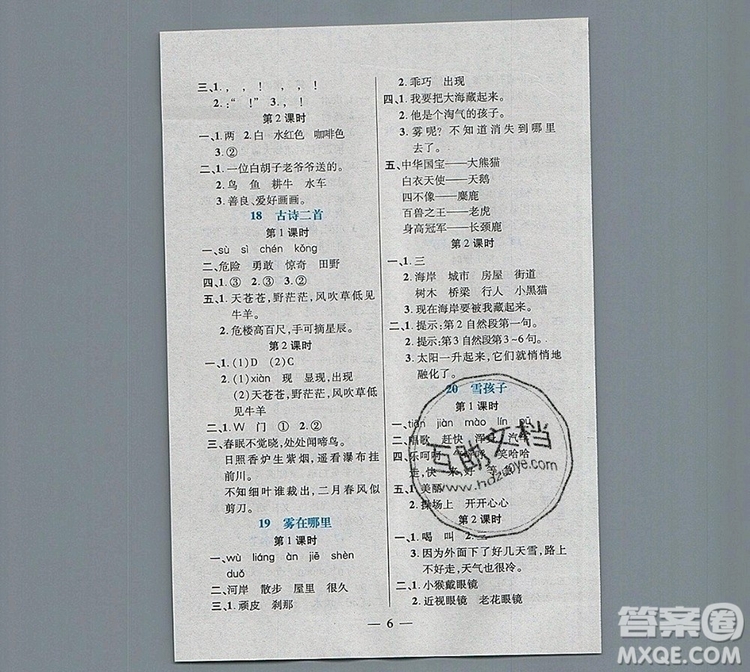 三、1.， ， ！ ， ， ！
2.：“ ！” 3.， ！
第 2 课时
一、1.两 2.白 水红色 咖啡色
3.②
二、1.一位白胡子老爷爷送的。
2.鸟 鱼 耕牛 水车
3.善良、爱好画画。
18 古诗二首
第 1 课时
一、sù sì chén kǒng
二、危险 勇敢 惊奇 田野
四、1.③ 2.③ 3.① 4.②
五、1.天苍苍，野茫茫，风吹草低见
牛羊。
2.危楼高百尺，手可摘星辰。
第 2 课时
一、1.(1)D (2)C
2.(1)xiàn 现 显现，出现
(2)天苍苍，野茫茫，风吹草低
见牛羊
二、1.W 门 2.① ②
三、春眠不觉晓，处处闻啼鸟。
日照香炉生紫烟，遥看瀑布挂
前川。
不知细叶谁裁出，二月春风似
剪刀。
19 雾在哪里
第 1 课时
一、wù liáng àn jiē shèn
duǒ
二、河岸 散步 屋里 很久
三、1.顽皮 刹那
2.乖巧 出现
四、1.我要把大海藏起来。
2.他是个淘气的孩子。
3.雾呢？不知道消失到哪里
去了。
五、中华国宝——大熊猫
白衣天使——天鹅
四不像——麋鹿
百兽之王——老虎
身高冠军——长颈鹿
第 2 课时
一、1.三
2.海岸 城市 房屋 街道
树木 桥梁 行人 小黑猫
3.现在海岸要被我藏起来。
二、1.提示：第 2 自然段第一句。
2.提示：第 3 自然段第 3~6 句。
3.太阳一升起来，它们就悄悄地
融化了。
20 雪孩子
第 1 课时
一、tiān jiàn mào lín pū
二、唱歌 赶快 浑 汽
四、乐呵呵 笑哈哈
走，快
五、1.美丽
2.操场上 开开心心
第 2 课时
一、1.喝 叫 2.
3.因为外面下了好几天雪，路上
不好走，天气也很冷。
二、1.小猴戴眼镜
2.近视眼镜 老花眼镜
— 6 —
互助文档
www.hdzuoye.com
答案圈
MXQE.COM